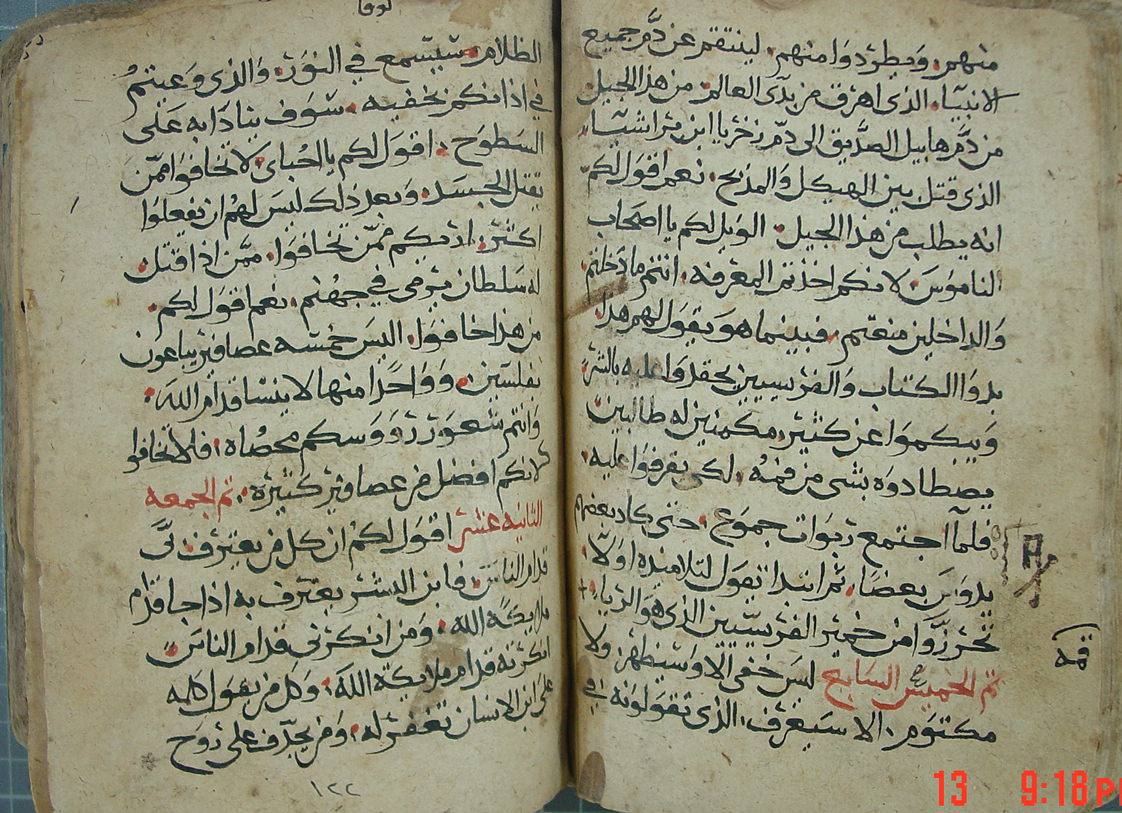 منهم. ويطردوا منهم. لينتقم عن دم جميع
الانبيا. الذى اهرق من بدى العالم. من هذا الجيل.
من دم هابيل الصديق الى دم زخريا ابن براشيا.
الذى قتل بين الهيكل والمذبح. نعم اقول لكم
انه يطلب من هذا الجيل. الويل لكم يا اصحاب
الناموس. لانكم اخذتم المعرفه. انتم ما دخلتم
والداخلين منعتم. فبينما هو يقول لهم هذا
بدوا الكتاب والفريسيين يحقدوا عليه بالشر
ويبكموا عن كثير. مكمنين له طالبين
يصطادوه بشى من فمه. لكى يقرفوا عليه.
فلما اجتمع ربوات جموع. حتى كاد بعضهم
يدوس بعضا. ثم ابتدا يقول لتلاميذه اولا
تحرزوا من خمير الفريسيين الذى هو الريا.
تم الخميس السابع ليس خفى الا وسيظهر. ولا
مكتوم. الا سيعرف. الذى تقولونه فى
قمه
لوقا
الظلام. سيسمع في النور. والذى وعيتم
في اذانكم بخفيه. سوف ينادا به على
السطوح. اقول لكم يا احباى. لا تخافوا ممن
يقتل الجسد. وبعد ذلك ليس لهم ان يفعلوا
اكثر. اريكم ممن تخافوا. ممن اذا قتل.
له سلطان يرمى في جهنم. نعم اقول لكم.
من هذا خافوا. اليس خمسه عصافير يباعون
بفلسين. وواحدا منها لا ينسا قدام الله.
وانتم شعور رووسكم محصاه. فلا تخافوا
لانكم افضل من عصافير كثيره. تم الجمعه
الثانيه عشر اقول لكم ان كل من يعترف بى
قدام الناس. فابن البشر يعترف به اذا جا قدام
ملايكة الله. ومن انكرنى قدام الناس
انكرته قدام ملايكة الله. وكل من يقول كلمه
على ابن الانسان تغفر له. ومن يجدف على روح
١٢٢
13 9:18 PM